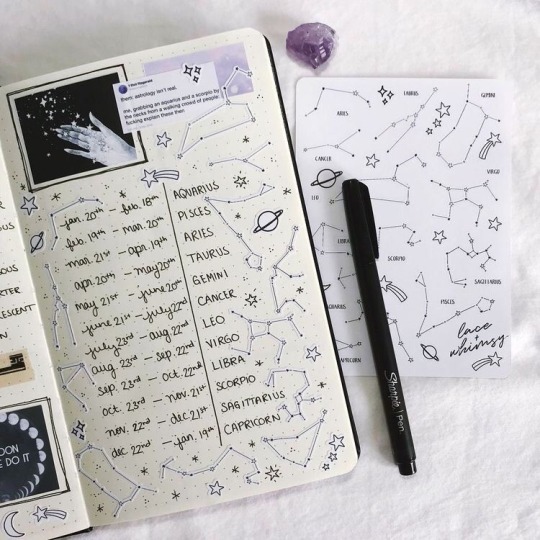 OUS
ARTER
ESCENT
N
OON
E DO IT
them: astrology isn't real.
me, grabbing an aquarius and a scorpio by
the necks from a walking crowd of people:
fucking explain these then
jan. 20th — feb. 18th AQUARIUS
feb. 19th — mar. 20th PISCES
mar. 21st — apr. 19th ARIES
apr. 20th — may 20th TAURUS
may 21st — june 20th GEMINI
june 21st — july 22nd CANCER
july 23rd — aug. 22nd LEO
aug. 23rd — sep. 22nd VIRGO
sep. 23rd — oct. 22nd LIBRA
oct. 23rd — nov. 21st SCORPIO
nov. 22nd — dec. 21st SAGITTARIUS
dec 22nd — jan. 19th CAPRICORN
ARIES
TAURUS
GEMINI
CANCER
LEO
VIRGO
LIBRA
SCORPIO
SAGITTARIUS
AQUARIUS
PISCES
CAPRICORN
lace
whimsy
Sharpie Pen